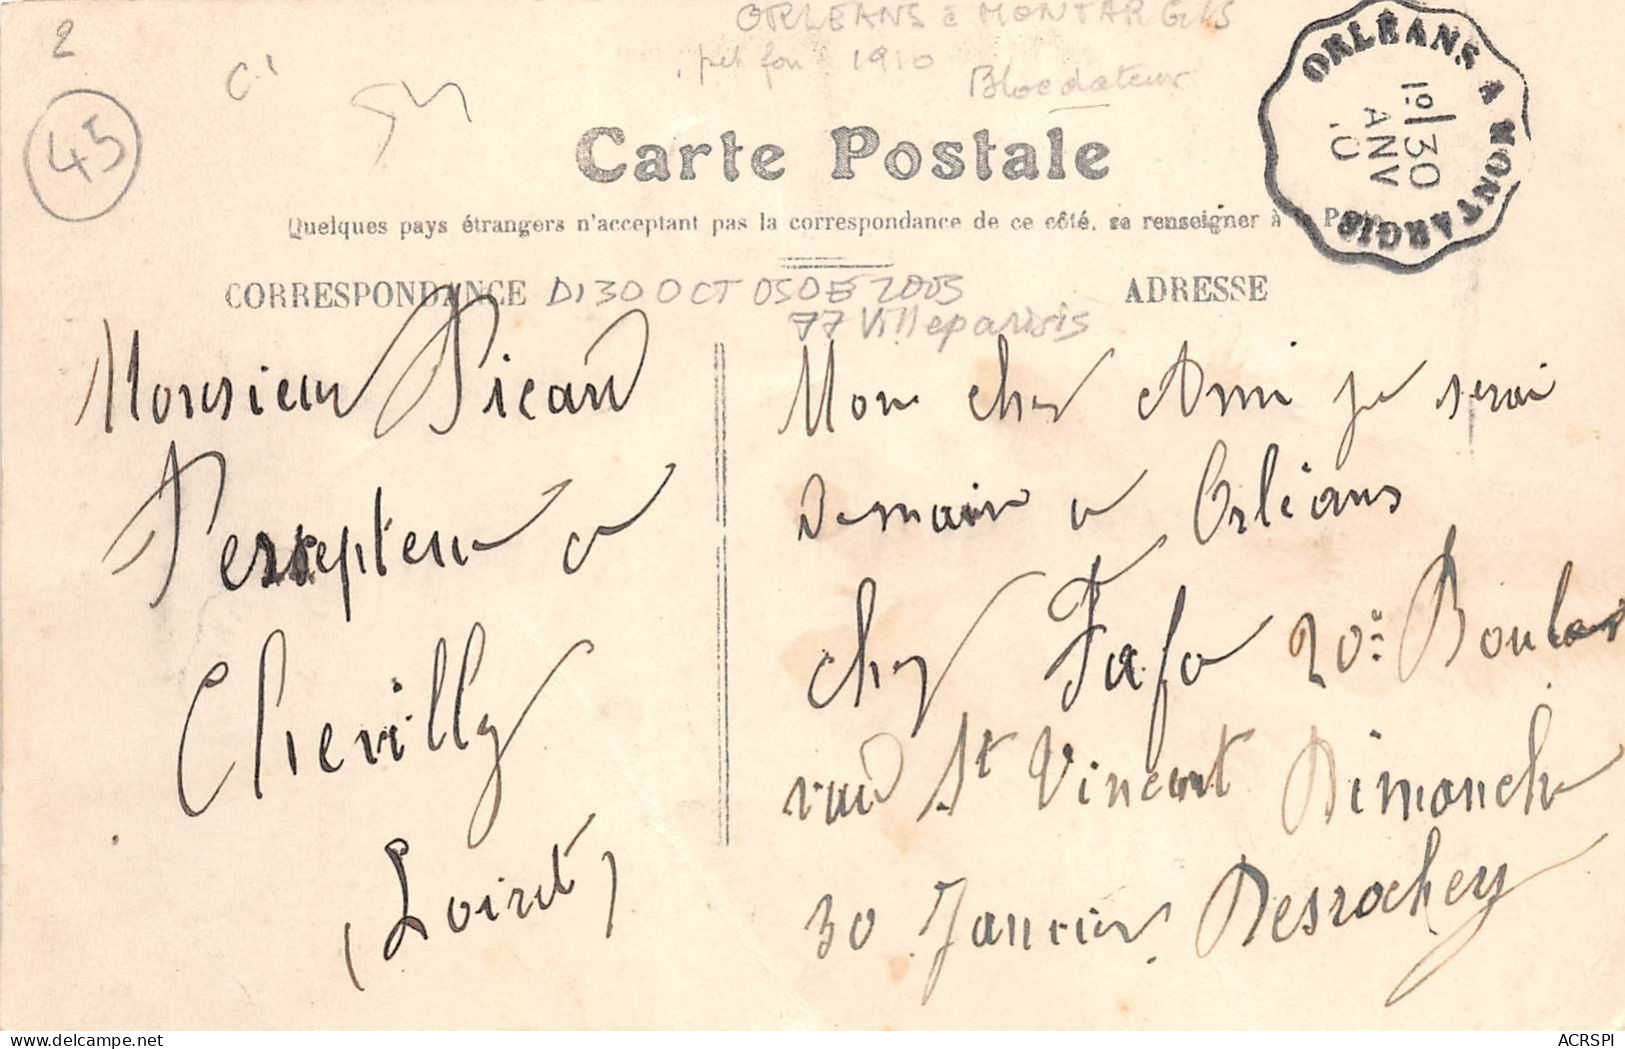 2
ORLEANS à MONTARGIS
1910
Blocdateur
C1
45
ORLÉANS A MONTARGIS
1º/30
ANV
10
Carte Postale
Quelques pays étrangers n'acceptant pas la correspondance de ce côté, se renseigner à
CORRESPONDANCE
DI 30 OCT 05 DE 2005
77 Villeparisis
ADRESSE
Monsieur Picard
Persepteur a
Chevilly
(Loiret)
Mon cher Ami je serai
Demain a Orléans
chez Fafa 20: Boular
rue St Vincent Dimanche
30 Janvier Desrochey
ACRSPI